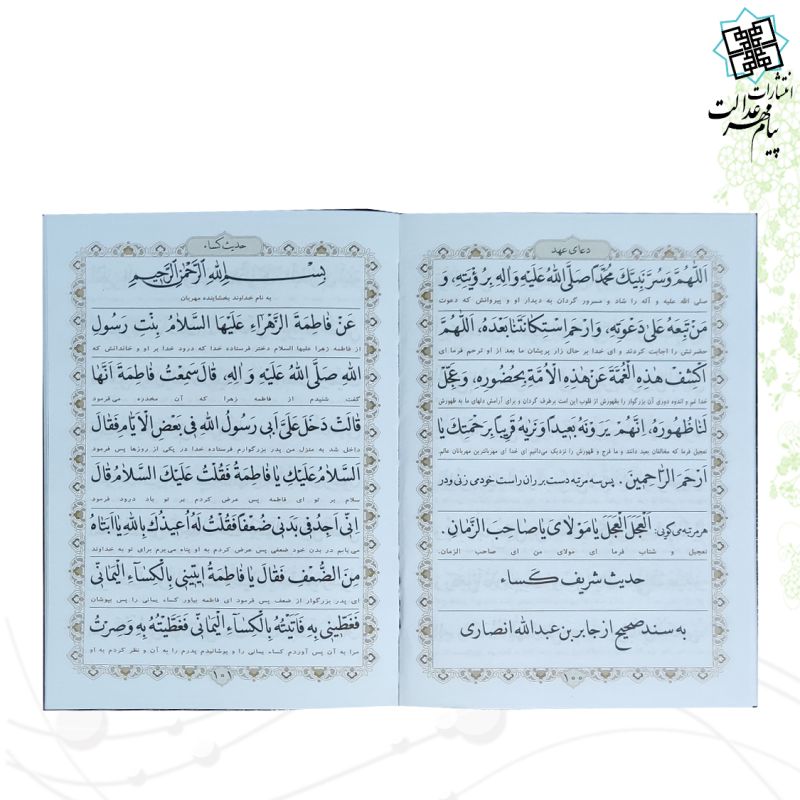 انتشارات
پیام مهر عدالت
دعای عهد
اَللّٰهُمَّ وَسُرَّ نَبِيَّكَ مُحَمَّداً صَلَّى اللهُ عَلَيْهِ وَالِهِ بِرُؤْيَتِهِ، وَ
صلی الله علیه و آله را شاد و مسرور گردان به دیدار او و پیروانش که دعوت
مَنْ تَبِعَهُ عَلىٰ دَعْوَتِهِ، وَارْحَمِ اسْتِكانَتَنا بَعْدَهُ، اَللّٰهُمَّ
حضرتش را اجابت کردند و ای خدا بر حال زار پریشان ما بعد از او ترحم فرما ای
اكْشِفْ هٰذِهِ الْغُمَّةَ عَنْ هٰذِهِ الْاُمَّةِ بِحُضُورِهِ، وَعَجِّلْ
خدا غم و اندوه دوری آن بزرگوار را بظهورش از قلوب این امت برطرف گردان و برای آرامش دلهای ما به ظهورش
لَنا ظُهُورَهُ، اِنَّهُمْ يَرَوْنَهُ بَعيداً وَنَرٰيهُ قَريباً بِرَحْمَتِكَ يا
تعجیل فرما که مخالفان بعید دانند و ما فرج و ظهورش را نزدیک می‌دانیم ای خدا ای مهربانترین مهربانان عالم.
اَرْحَمَ الرّٰاحِمينَ. پس سه مرتبه دست بر ران راست خود می زنی و در
هر مرتبه می گویی: اَلْعَجَلَ الْعَجَلَ يا مَوْلاىَ يا صاحِبَ الزَّمانِ.
تعجیل و شتاب فرما ای مولای من ای صاحب الزمان.
حدیث شریف کساء
به سند صحیح از جابر بن عبدالله انصاری
۱۰۰
حدیث کساء
بِسْمِ اللهِ الرَّحْمٰنِ الرَّحيمِ
به نام خداوند بخشاینده مهربان
عَنْ فاطِمَةَ الزَّهْراءِ عَلَيْهَا السَّلامُ بِنْتِ رَسُولِ
از فاطمه زهرا علیها السلام دختر فرستاده خدا که درود خدا بر او و خاندانش که
اللهِ صَلَّى اللهُ عَلَيْهِ وَ الِهِ، قالَ سَمِعْتُ فاطِمَةَ اَنَّها
گفت شنیدم از فاطمه زهرا که آن مخدره می‌فرمود
قالَتْ دَخَلَ عَلَىَّ اَبى رَسُولُ اللهِ فى بَعْضِ الْاَيّامِ فَقالَ
داخل شد به منزل من پدر بزرگوارم فرستاده خدا در یکی از روزها پس فرمود
اَلسَّلامُ عَلَيْكِ يا فاطِمَةُ فَقُلْتُ عَلَيْكَ السَّلامُ قالَ
سلام بر تو ای فاطمه پس عرض کردم بر تو باد درود فرمود
اِنّى اَجِدُ فى بَدَنى ضُعْفاً فَقُلْتُ لَهُ اُعيذُكَ بِاللهِ يا اَبَتاهُ
می‌یابم در بدن خود ضعفی پس عرض کردم به او پناه می‌برم برای تو به خداوند
مِنَ الضُّعْفِ فَقالَ يا فاطِمَةُ ايتينى بِالْكِساءِ الْيَمانى
ای پدر بزرگوار از ضعف پس فرمود ای فاطمه بیاور کساء یمانی را پس بپوشان
فَغَطّينى بِهِ فَاَتَيْتُهُ بِالْكِساءِ الْيَمانى فَغَطَّيْتُهُ بِهِ وَ صِرْتُ
مرا به آن پس آوردم کساء یمانی را و پوشانیدم پدرم را به آن و نظر کردم به او
۱۰۱